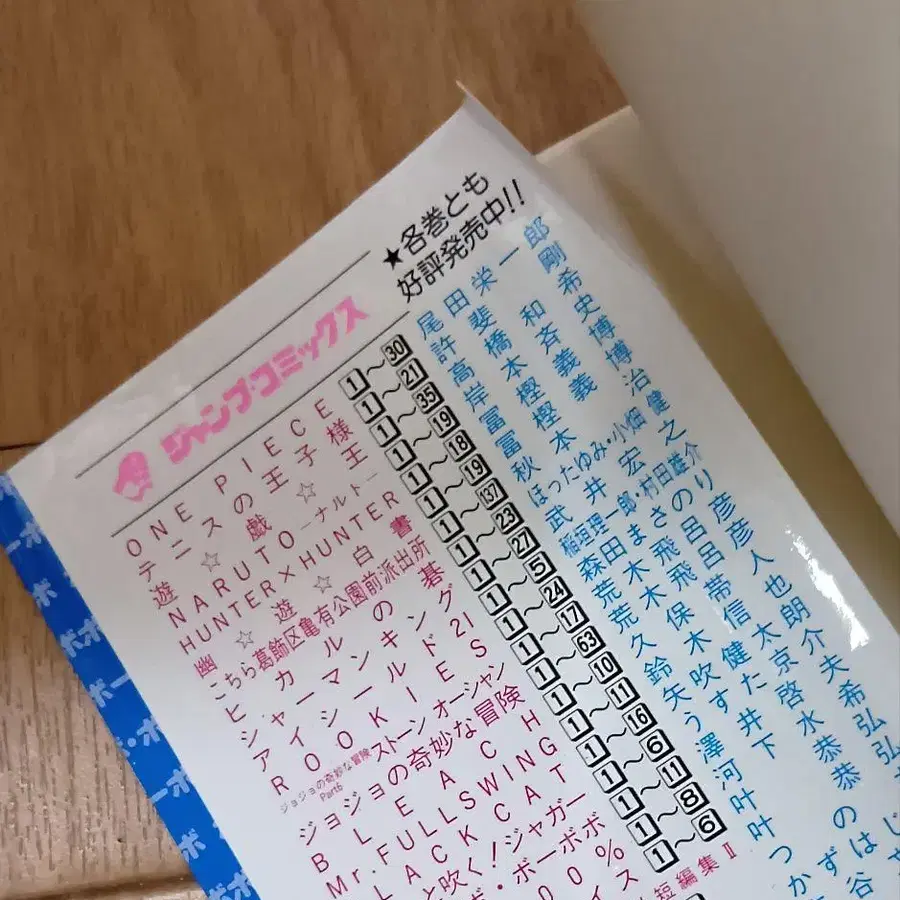 ★各巻とも
好評発売中!!
ジャンプ・コミックス
ONE PIECE 1~30 尾田栄一郎
テニスの王子様 1~21 許斐剛
遊☆戯☆王 1~35 高橋和希
NARUTO—ナルト— 1~19 岸本斉史
HUNTER×HUNTER 1~18 冨樫義博
幽☆遊☆白書 1~19 冨樫義博
こちら葛飾区亀有公園前派出所 1~137 秋本治
ヒカルの碁 1~23 ほったゆみ・小畑健
シャーマンキング 1~27 武井宏之
アイシールド21 1~5 稲垣理一郎・村田雄介
ROOKIES 1~24 森田まさのり
ジョジョの奇妙な冒険 Part6 ストーンオーシャン 1~17 荒木飛呂彦
ジョジョの奇妙な冒険 1~63 荒木飛呂彦
BLEACH 1~10 久保帯人
Mr.FULLSWING 1~11 鈴木信也
LACK CAT 1~16 矢吹健太朗
と吹く!ジャガー 1~6 うすた京介
ボ・ボーボボ 1~11 澤井啓夫
00% 1~8 河下水希
イス 1~6 叶恭弘
短編集II 叶恭弘